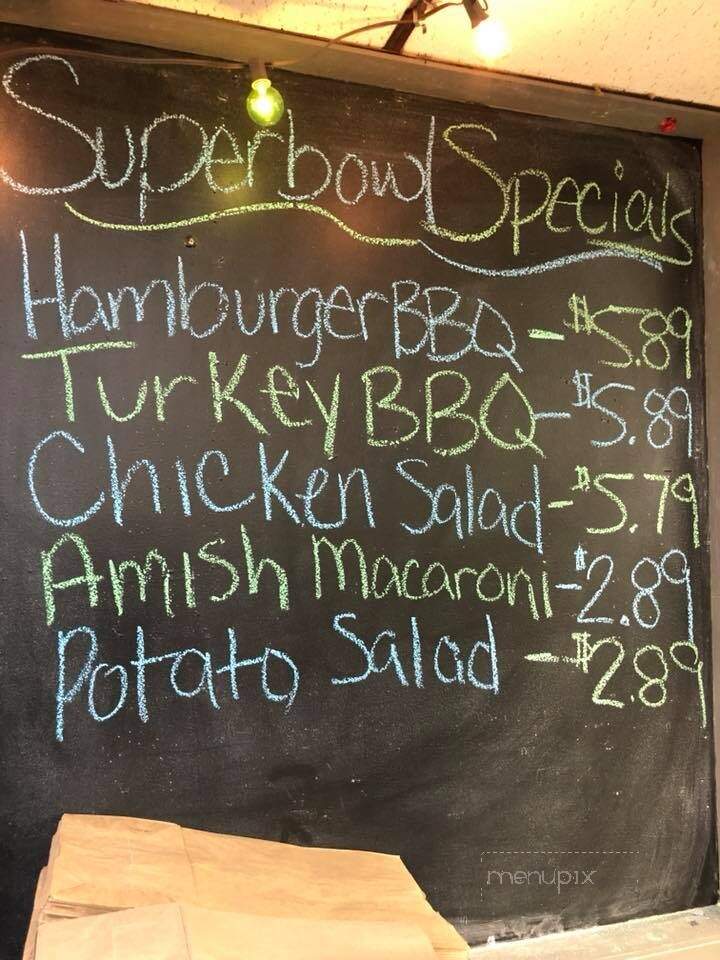 Superbowl Specials
Hamburger BBQ - $5.89
Turkey BBQ - $5.89
Chicken Salad - $5.79
Amish Macaroni - $2.89
Potato Salad - $2.89
menupix